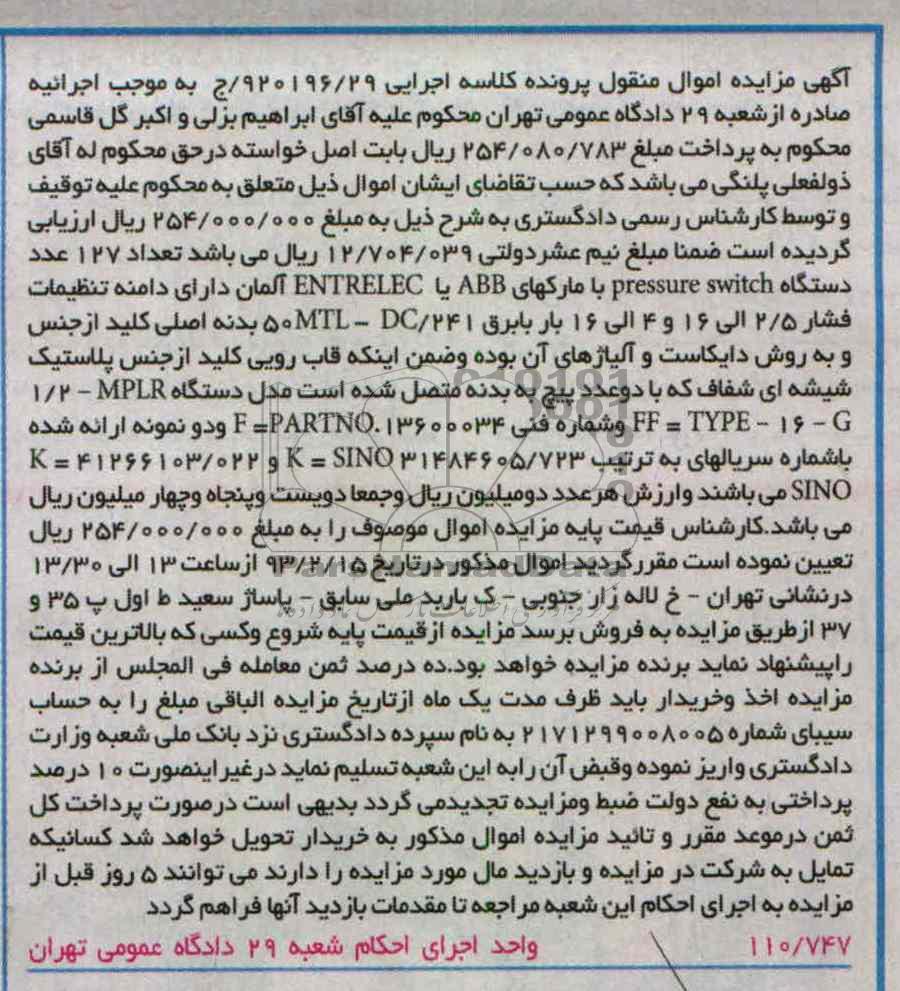 آگهی مزایده اموال منقول پرونده کلاسه اجرایی ۹۲۰۱۹۶/۲۹/ج به موجب اجرائیه
صادره ازشعبه ۲۹ دادگاه عمومی تهران محکوم علیه آقای ابراهیم بزلی و اکبر گل قاسمی
محکوم به پرداخت مبلغ ۲۵۴/۰۸۰/۷۸۳ ریال بابت اصل خواسته درحق محکوم له آقای
ذولفعلی پلنگی می باشد که حسب تقاضای ایشان اموال ذیل متعلق به محکوم علیه توقیف
و توسط کارشناس رسمی دادگستری به شرح ذیل به مبلغ ۲۵۴/۰۰۰/۰۰۰ ریال ارزیابی
گردیده است ضمنا مبلغ نیم عشردولتی ۱۲/۷۰۴/۰۳۹ ریال می باشد تعداد ۱۲۷ عدد
دستگاه pressure switch با مارکهای ABB یا ENTRELEC آلمان دارای دامنه تنظیمات
فشار ۲/۵ الی ۱۶ و ۴ الی ۱۶ بار بابرق ۵۰MTL – DC/۲۴۱ بدنه اصلی کلید ازجنس
و به روش دایکاست و آلیاژهای آن بوده وضمن اینکه قاب رویی کلید ازجنس پلاستیک
شیشه ای شفاف که با دوعدد پیچ به بدنه متصل شده است مدل دستگاه ۱/۲ – MPLR
FF = TYPE – ۱۶ – G وشماره فنی F =PARTNO.۱۳۶۰۰۰۳۴ ودو نمونه ارائه شده
باشماره سریالهای به ترتیب K = SINO ۳۱۴۸۴۶۰۵/۷۲۳ و K = ۴۱۲۶۶۱۰۳/۰۲۲
SINO می باشند وارزش هرعدد دومیلیون ریال وجمعا دویست وپنجاه وچهار میلیون ریال
می باشد.کارشناس قیمت پایه مزایده اموال موصوف را به مبلغ ۲۵۴/۰۰۰/۰۰۰ ریال
تعیین نموده است مقررگردید اموال مذکور درتاریخ ۹۳/۲/۱۵ ازساعت ۱۳ الی ۱۳/۳۰
درنشانی تهران - خ لاله زار جنوبی - ک باربد ملی سابق - پاساژ سعید ط اول پ ۳۵ و
۳۷ ازطریق مزایده به فروش برسد مزایده ازقیمت پایه شروع وکسی که بالاترین قیمت
راپیشنهاد نماید برنده مزایده خواهد بود.ده درصد ثمن معامله فی المجلس از برنده
مزایده اخذ وخریدار باید ظرف مدت یک ماه ازتاریخ مزایده الباقی مبلغ را به حساب
سیبای شماره ۲۱۷۱۲۹۹۰۰۸۰۰۵ به نام سپرده دادگستری نزد بانک ملی شعبه وزارت
دادگستری واریز نموده وقبض آن رابه این شعبه تسلیم نماید درغیراینصورت ۱۰ درصد
پرداختی به نفع دولت ضبط ومزایده تجدیدمی گردد بدیهی است درصورت پرداخت کل
ثمن درموعد مقرر و تائید مزایده اموال مذکور به خریدار تحویل خواهد شد کسانیکه
تمایل به شرکت در مزایده و بازدید مال مورد مزایده را دارند می توانند ۵ روز قبل از
مزایده به اجرای احکام این شعبه مراجعه تا مقدمات بازدید آنها فراهم گردد
۱۱۰/۷۴۷ واحد اجرای احکام شعبه ۲۹ دادگاه عمومی تهران